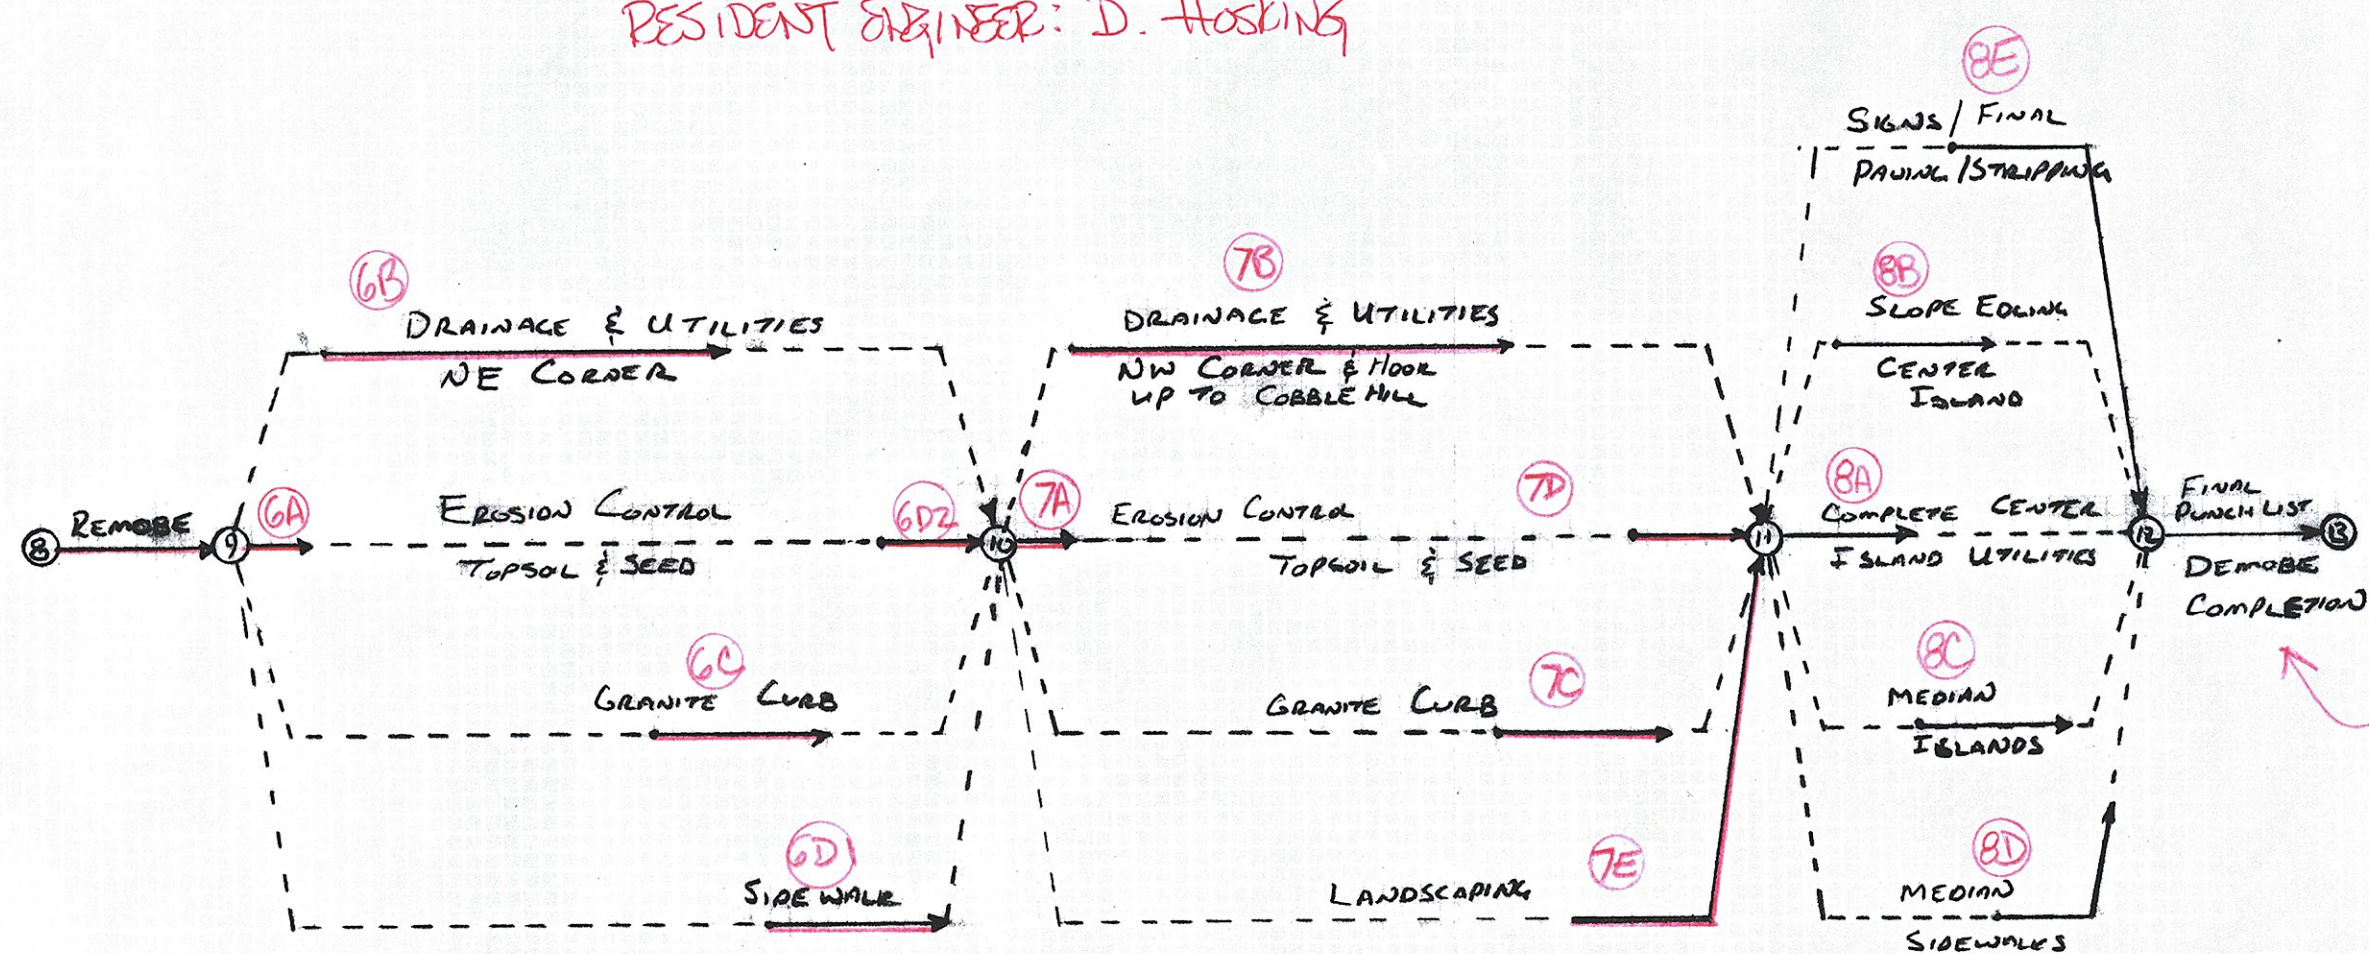 RESIDENT ENGINEER: D. HOSKING
8E
SIGNS / FINAL
PAVING / STRIPPING
6B
DRAINAGE & UTILITIES
NE CORNER
7B
DRAINAGE & UTILITIES
NW CORNER & HOOK
UP TO COBBLE HILL
8B
SLOPE EDGING
CENTER
ISLAND
8
REMOBE
9
6A
EROSION CONTROL
TOPSOIL & SEED
6D2
10
7A
EROSION CONTROL
TOPSOIL & SEED
7D
11
8A
COMPLETE CENTER
ISLAND UTILITIES
12
FINAL
PUNCHLIST
DEMOBE
COMPLETION
13
6C
GRANITE CURB
7C
GRANITE CURB
8C
MEDIAN
ISLANDS
6D1
SIDEWALK
7E
LANDSCAPING
8D
MEDIAN
SIDEWALKS